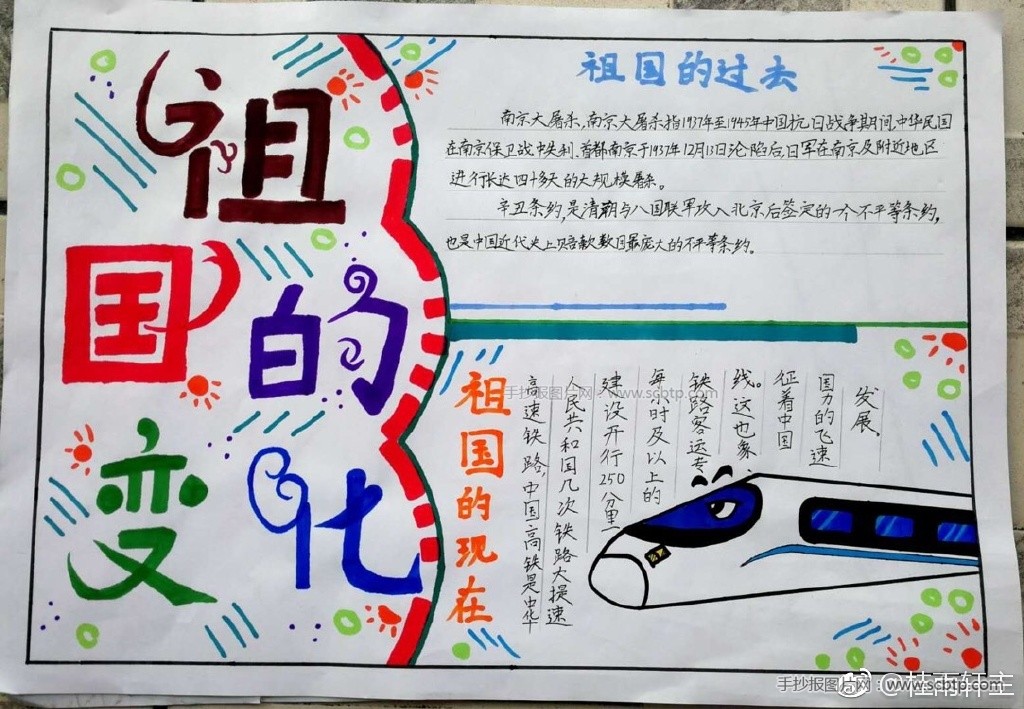 祖国
的
变化
祖国的过去
南京大屠杀,南京大屠杀指1937年至1945年中国抗日战争期间,中华民国
在南京保卫战中失利、首都南京于1937年12月13日沦陷后,日军在南京及附近地区
进行长达四十多天的大规模屠杀。
辛丑条约,是清朝与八国联军攻入北京后签定的一个不平等条约,
也是中国近代史上赔款数目最庞大的不平等条约。
祖国的现在
高速铁路,中国高铁是中华
人民共和国几次铁路大提速
建设开行250分里
每小时及以上的
铁路客运专
线。这也象
征着中国
国力的飞速
发展、
手抄报图片网:www.scbtp.com
手抄报图片网:www.scbtp.com
@桂雨轩主